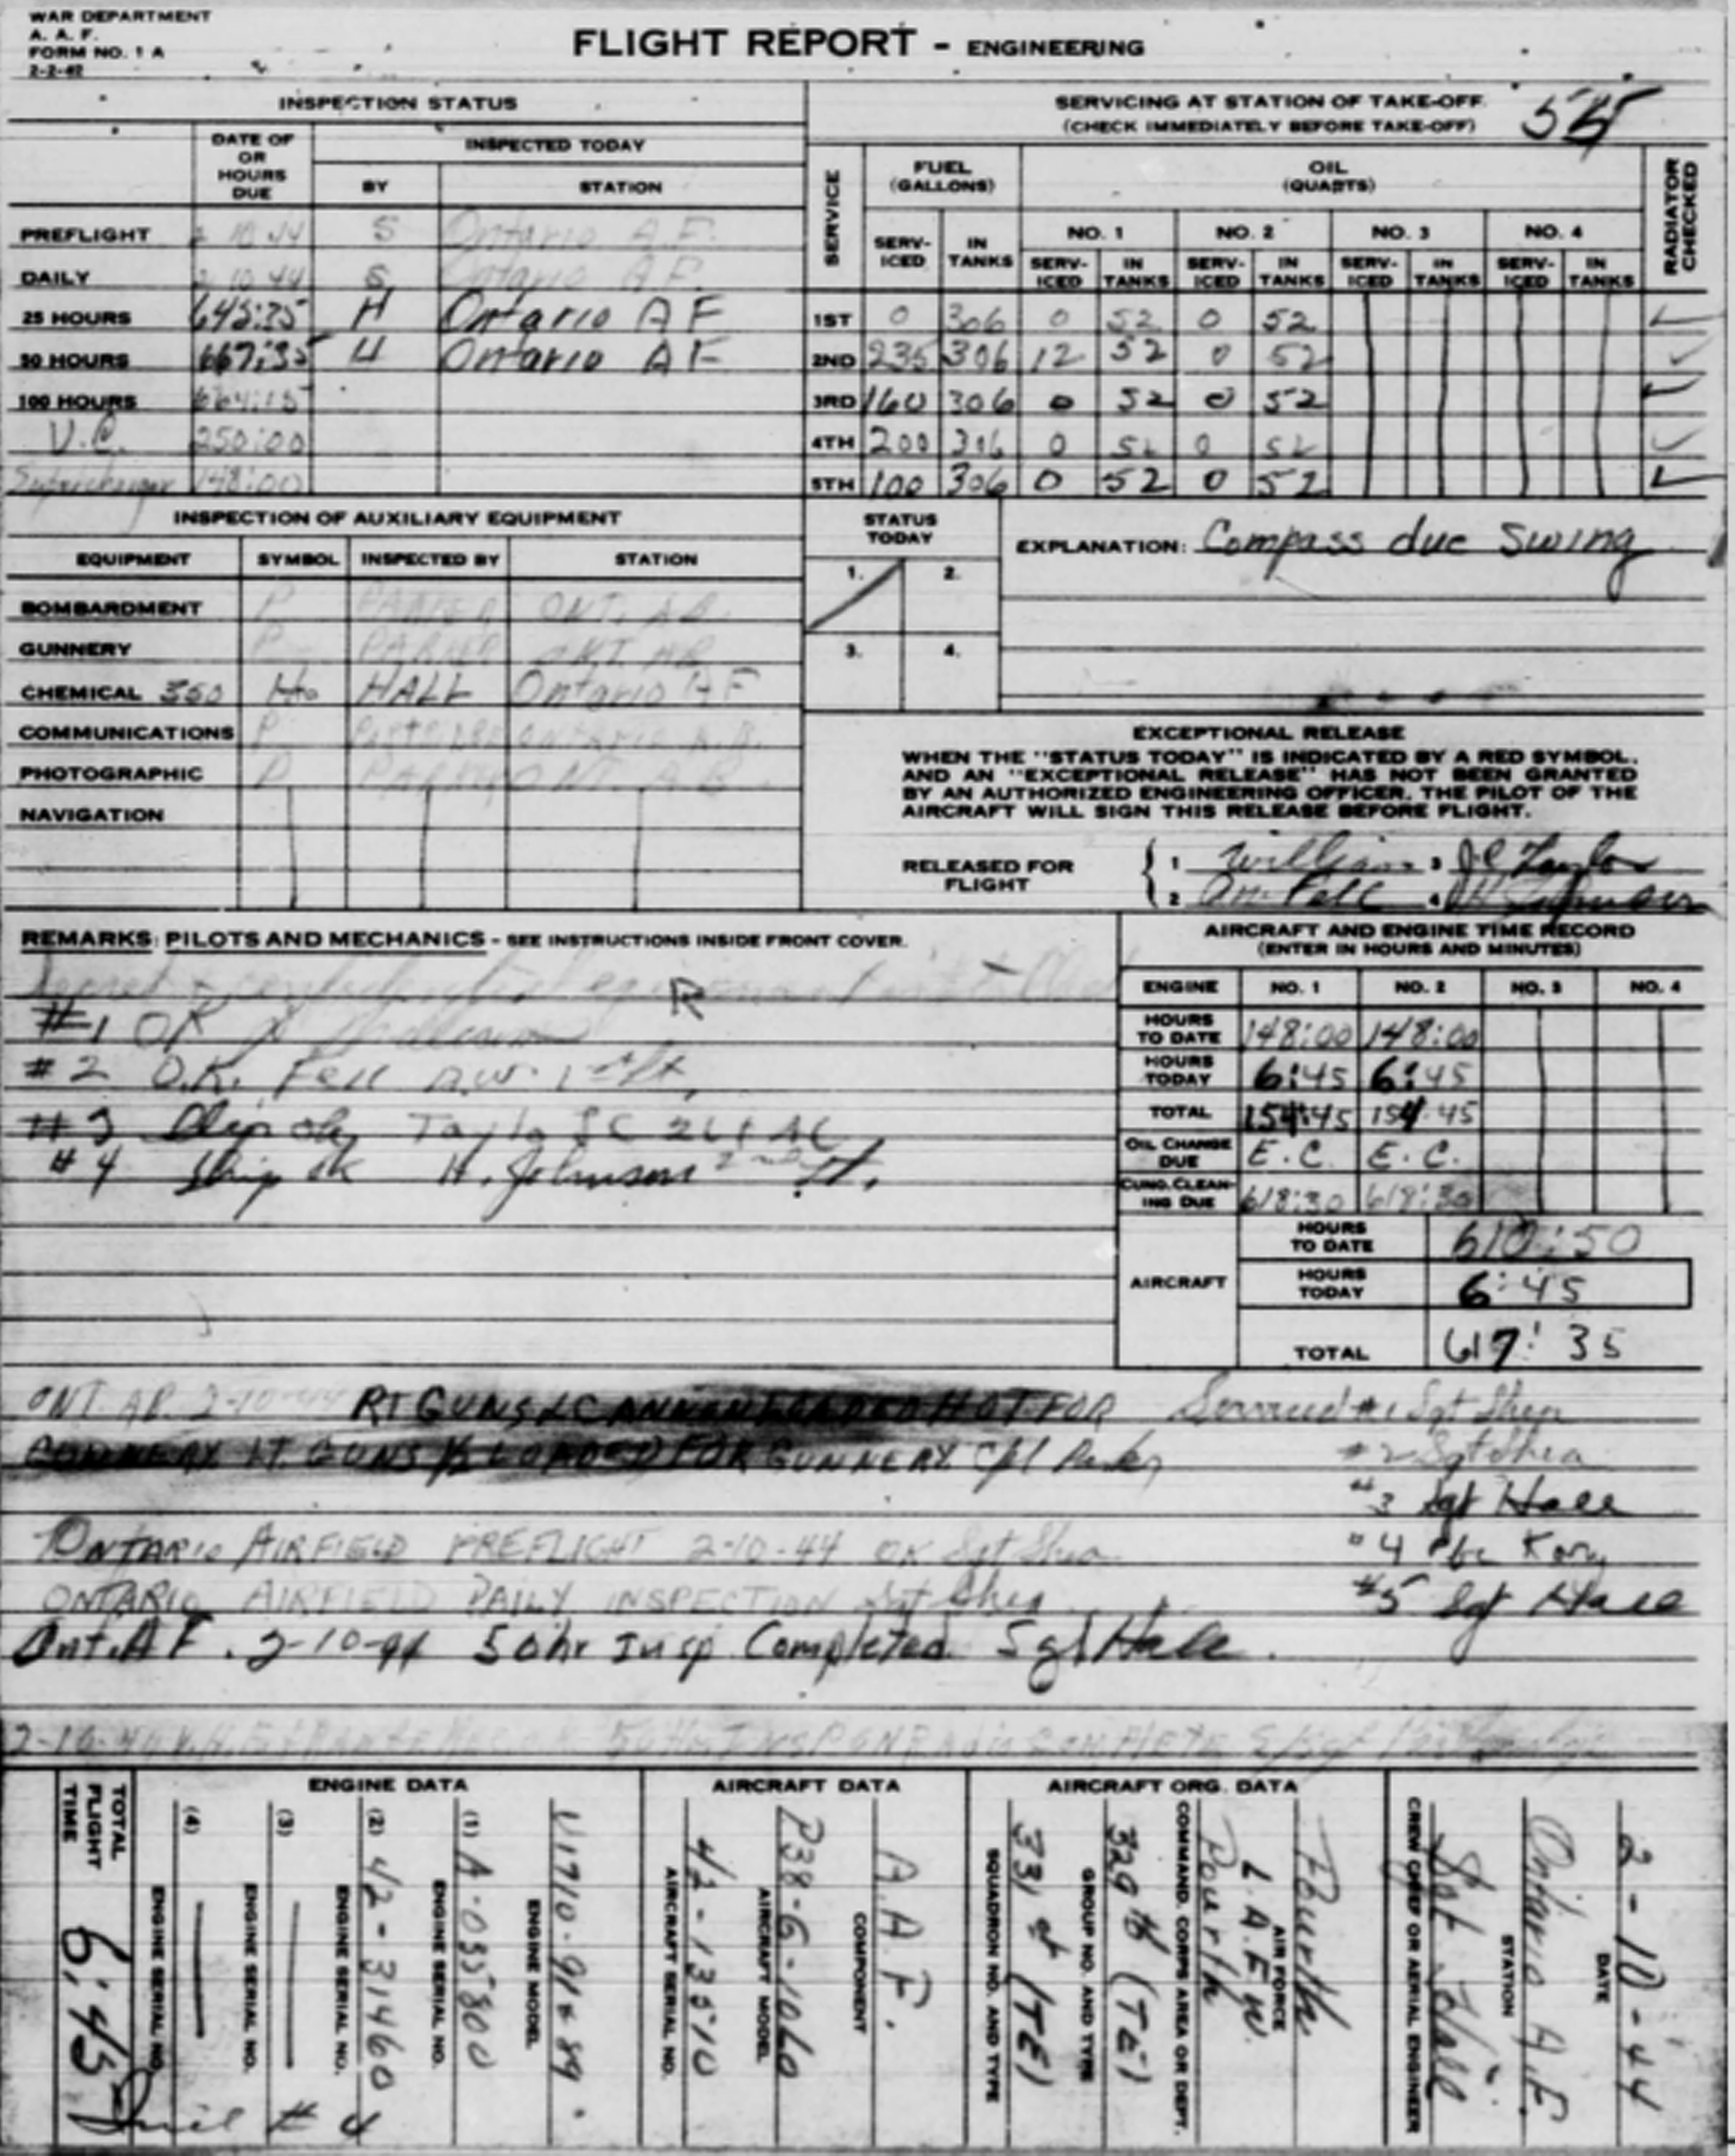 WAR DEPARTMENT
A. A. F.
FORM NO. 1 A
2-2-42
FLIGHT REPORT - ENGINEERING
INSPECTION STATUS
DATE OF OR HOURS DUE
INSPECTED TODAY
BY STATION
PREFLIGHT 2 10 44 S Ontario A.F.
DAILY 2 10 44 S Ontario A.F.
25 HOURS H Ontario A F
50 HOURS 667:35 H Ontario A F
100 HOURS
U.C. 250:00
Supercharger 148:00
SERVICING AT STATION OF TAKE-OFF
(CHECK IMMEDIATELY BEFORE TAKE-OFF)
SERVICE FUEL (GALLONS) OIL (QUARTS) RADIATOR CHECKED
NO. 1 NO. 2 NO. 3 NO. 4
SERV-ICED IN TANKS SERV-ICED IN TANKS SERV-ICED IN TANKS SERV-ICED IN TANKS SERV-ICED IN TANKS
1ST 0 306 0 52 0 52 ✓
2ND 235 306 12 52 0 52 ✓
3RD 160 306 0 52 0 52 ✓
4TH 200 306 0 52 0 52 ✓
5TH 100 306 0 52 0 52 ✓
INSPECTION OF AUXILIARY EQUIPMENT
EQUIPMENT SYMBOL INSPECTED BY STATION
BOMBARDMENT P PARKER ONT. AB.
GUNNERY P PARKER ONT AB
CHEMICAL 350 Ho HALL Ontario AF
COMMUNICATIONS P ONTARIO A.B.
PHOTOGRAPHIC P PARKER ONT. AB
NAVIGATION
STATUS TODAY
1. 2.
3. 4.
EXPLANATION: Compass due Swing
EXCEPTIONAL RELEASE
WHEN THE "STATUS TODAY" IS INDICATED BY A RED SYMBOL,
AND AN "EXCEPTIONAL RELEASE" HAS NOT BEEN GRANTED
BY AN AUTHORIZED ENGINEERING OFFICER, THE PILOT OF THE
AIRCRAFT WILL SIGN THIS RELEASE BEFORE FLIGHT.
RELEASED FOR FLIGHT
1 William 3 J C Taylor
2 Fell 4 H Johnson
REMARKS: PILOTS AND MECHANICS - SEE INSTRUCTIONS INSIDE FRONT COVER.
Secret & confidential equipment installed
R
#1 OK
#2 O.K. Fell 1st Lt.
#3 Ship ok Taylor JC 2Lt AC
#4 Ship ok H. Johnson 2nd Lt.
AIRCRAFT AND ENGINE TIME RECORD
(ENTER IN HOURS AND MINUTES)
ENGINE NO. 1 NO. 2 NO. 3 NO. 4
HOURS TO DATE 148:00 148:00
HOURS TODAY 6:45 6:45
TOTAL 154:45 154:45
OIL CHANGE DUE E.C. E.C.
CUNO. CLEAN-ING DUE 618:30 618:30
AIRCRAFT
HOURS TO DATE 610:50
HOURS TODAY 6:45
TOTAL 617:35
ONT. AB. 2-10-44 RT GUNS & CANNON LOADED HOT FOR
GUNNERY LT. GUNS ½ LOADED FOR GUNNERY Cpl Parker
Serviced #1 Sgt Shea
#2 Sgt Shea
#3 Sgt Hall
#4 Pfc
#5 Sgt Hall
ONTARIO AIRFIELD PREFLIGHT 2-10-44 OK Sgt Shea
ONTARIO AIRFIELD DAILY INSPECTION Sgt Shea
Ont. A F. 2-10-44 50hr Insp Completed Sgt Hall.
2-10-44 50 Hr. INSP ON RADIO COMPLETE S/Sgt
TOTAL FLIGHT TIME 6:45
ENGINE DATA
(4) ENGINE SERIAL NO.
(3) ENGINE SERIAL NO.
(2) 42-31460 ENGINE SERIAL NO.
(1) A-035800 ENGINE SERIAL NO.
V1710-91&89 ENGINE MODEL
AIRCRAFT DATA
42-13510 AIRCRAFT SERIAL NO.
P38-G-10LO AIRCRAFT MODEL
A.A.F. COMPONENT
AIRCRAFT ORG. DATA
331st (TE) SQUADRON NO. AND TYPE
329th (TE) GROUP NO. AND TYPE
Fourth COMMAND, CORPS AREA OR DEPT.
L.A.F.W.
Fourth AIR FORCE
Sgt Hall CREW CHIEF OR AERIAL ENGINEER
Ontario A.F. STATION
2-10-44 DATE
# 4